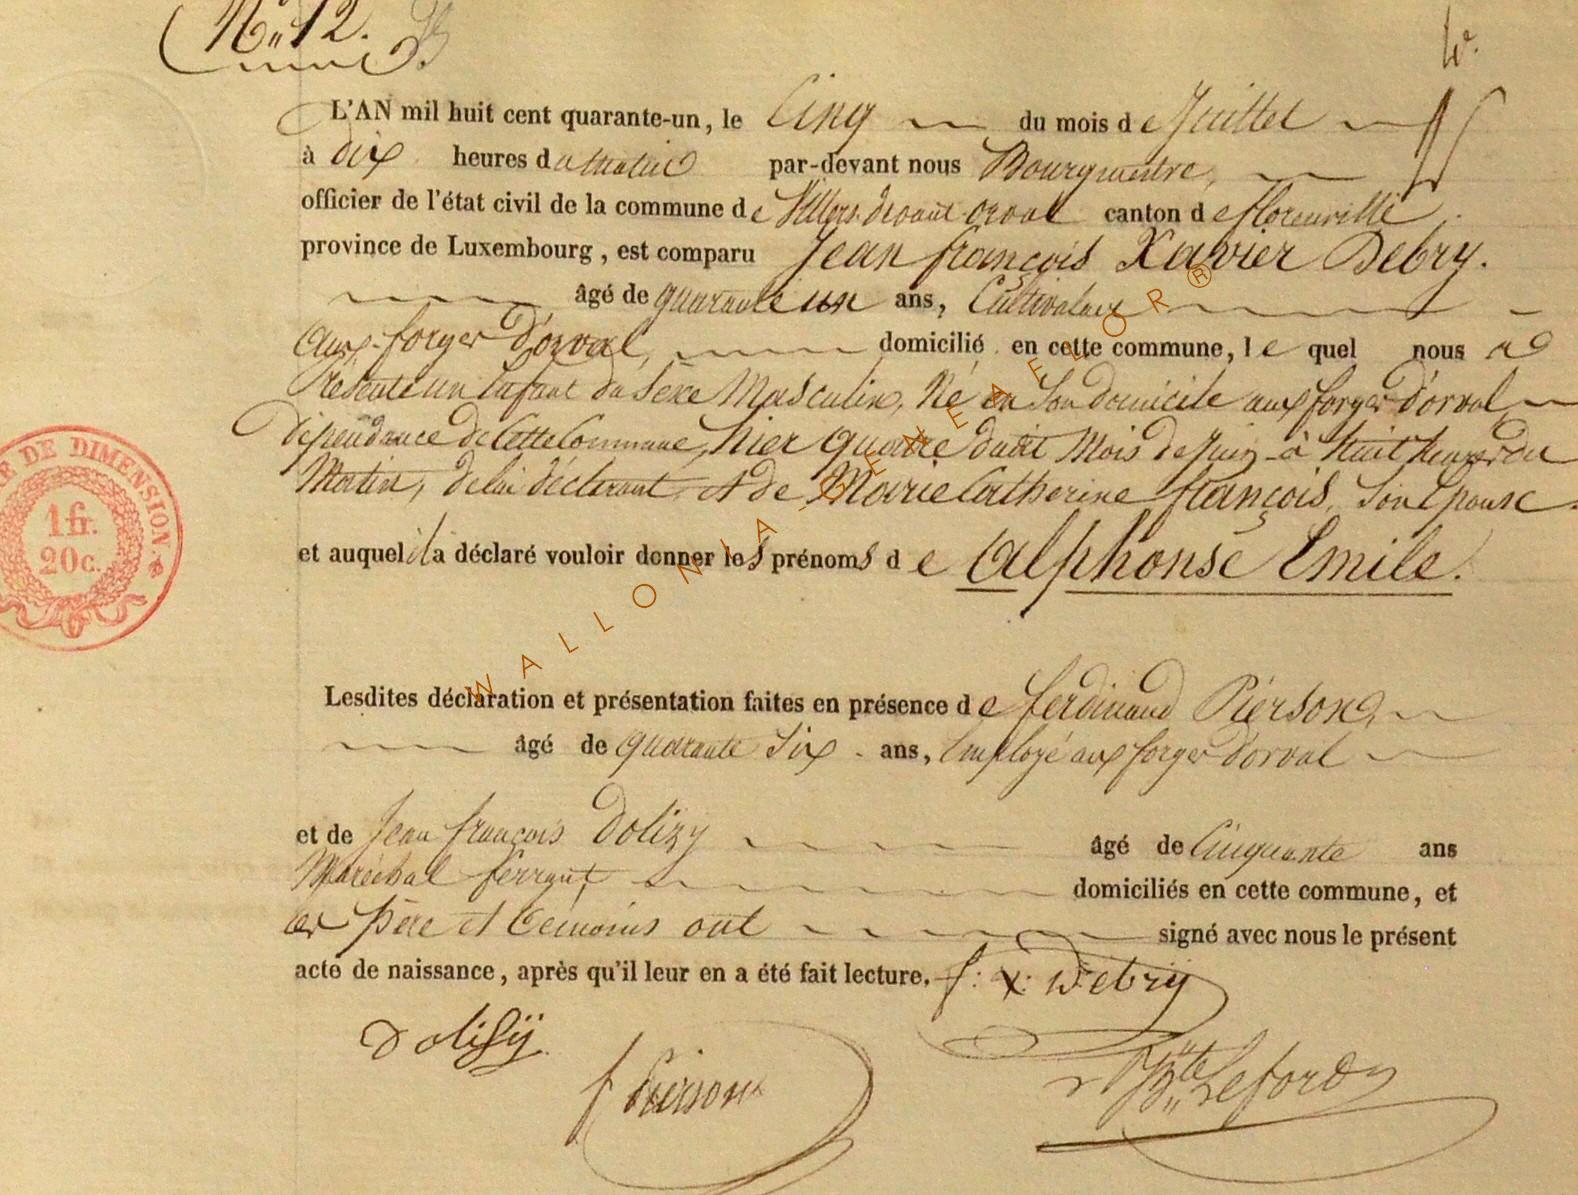 N.° 12.
L'AN mil huit cent quarante-un, le Cinq du mois de Juillet
à dix heures du matin par-devant nous Bourgmestre,
officier de l'état civil de la commune de Villers devant orval canton de florenville.
province de Luxembourg, est comparu Jean françois Xavier Debry.
âgé de quarante un ans, Cultivateur
aux forges d'orval, domicilié en cette commune, lequel nous a
Présenté un Enfant du Sexe Masculin, Né en Son domicile aux forges d'orval
dépendance de Cette Commune, hier quatre dudit Mois de juin à huit heures du
Matin, de lui déclarant, et de Marie Catherine françois, Son Epouse
et auquel il a déclaré vouloir donner les prénoms de Alphonse Emile.
Lesdites déclaration et présentation faites en présence de ferdinand Piérson,
âgé de quarante Six ans, Employé aux forges d'orval
et de Jean françois Dolizy âgé de Cinquante ans
Maréchal ferrant, domiciliés en cette commune, et
les Père et témoins ont signé avec nous le présent
acte de naissance, après qu'il leur en a été fait lecture. f: x: Debry
Dolisÿ
f Pierson
Bte Lefort
E DE DIMENSION.
1 fr.
20c.
WALLONIA-GENEAELOR®